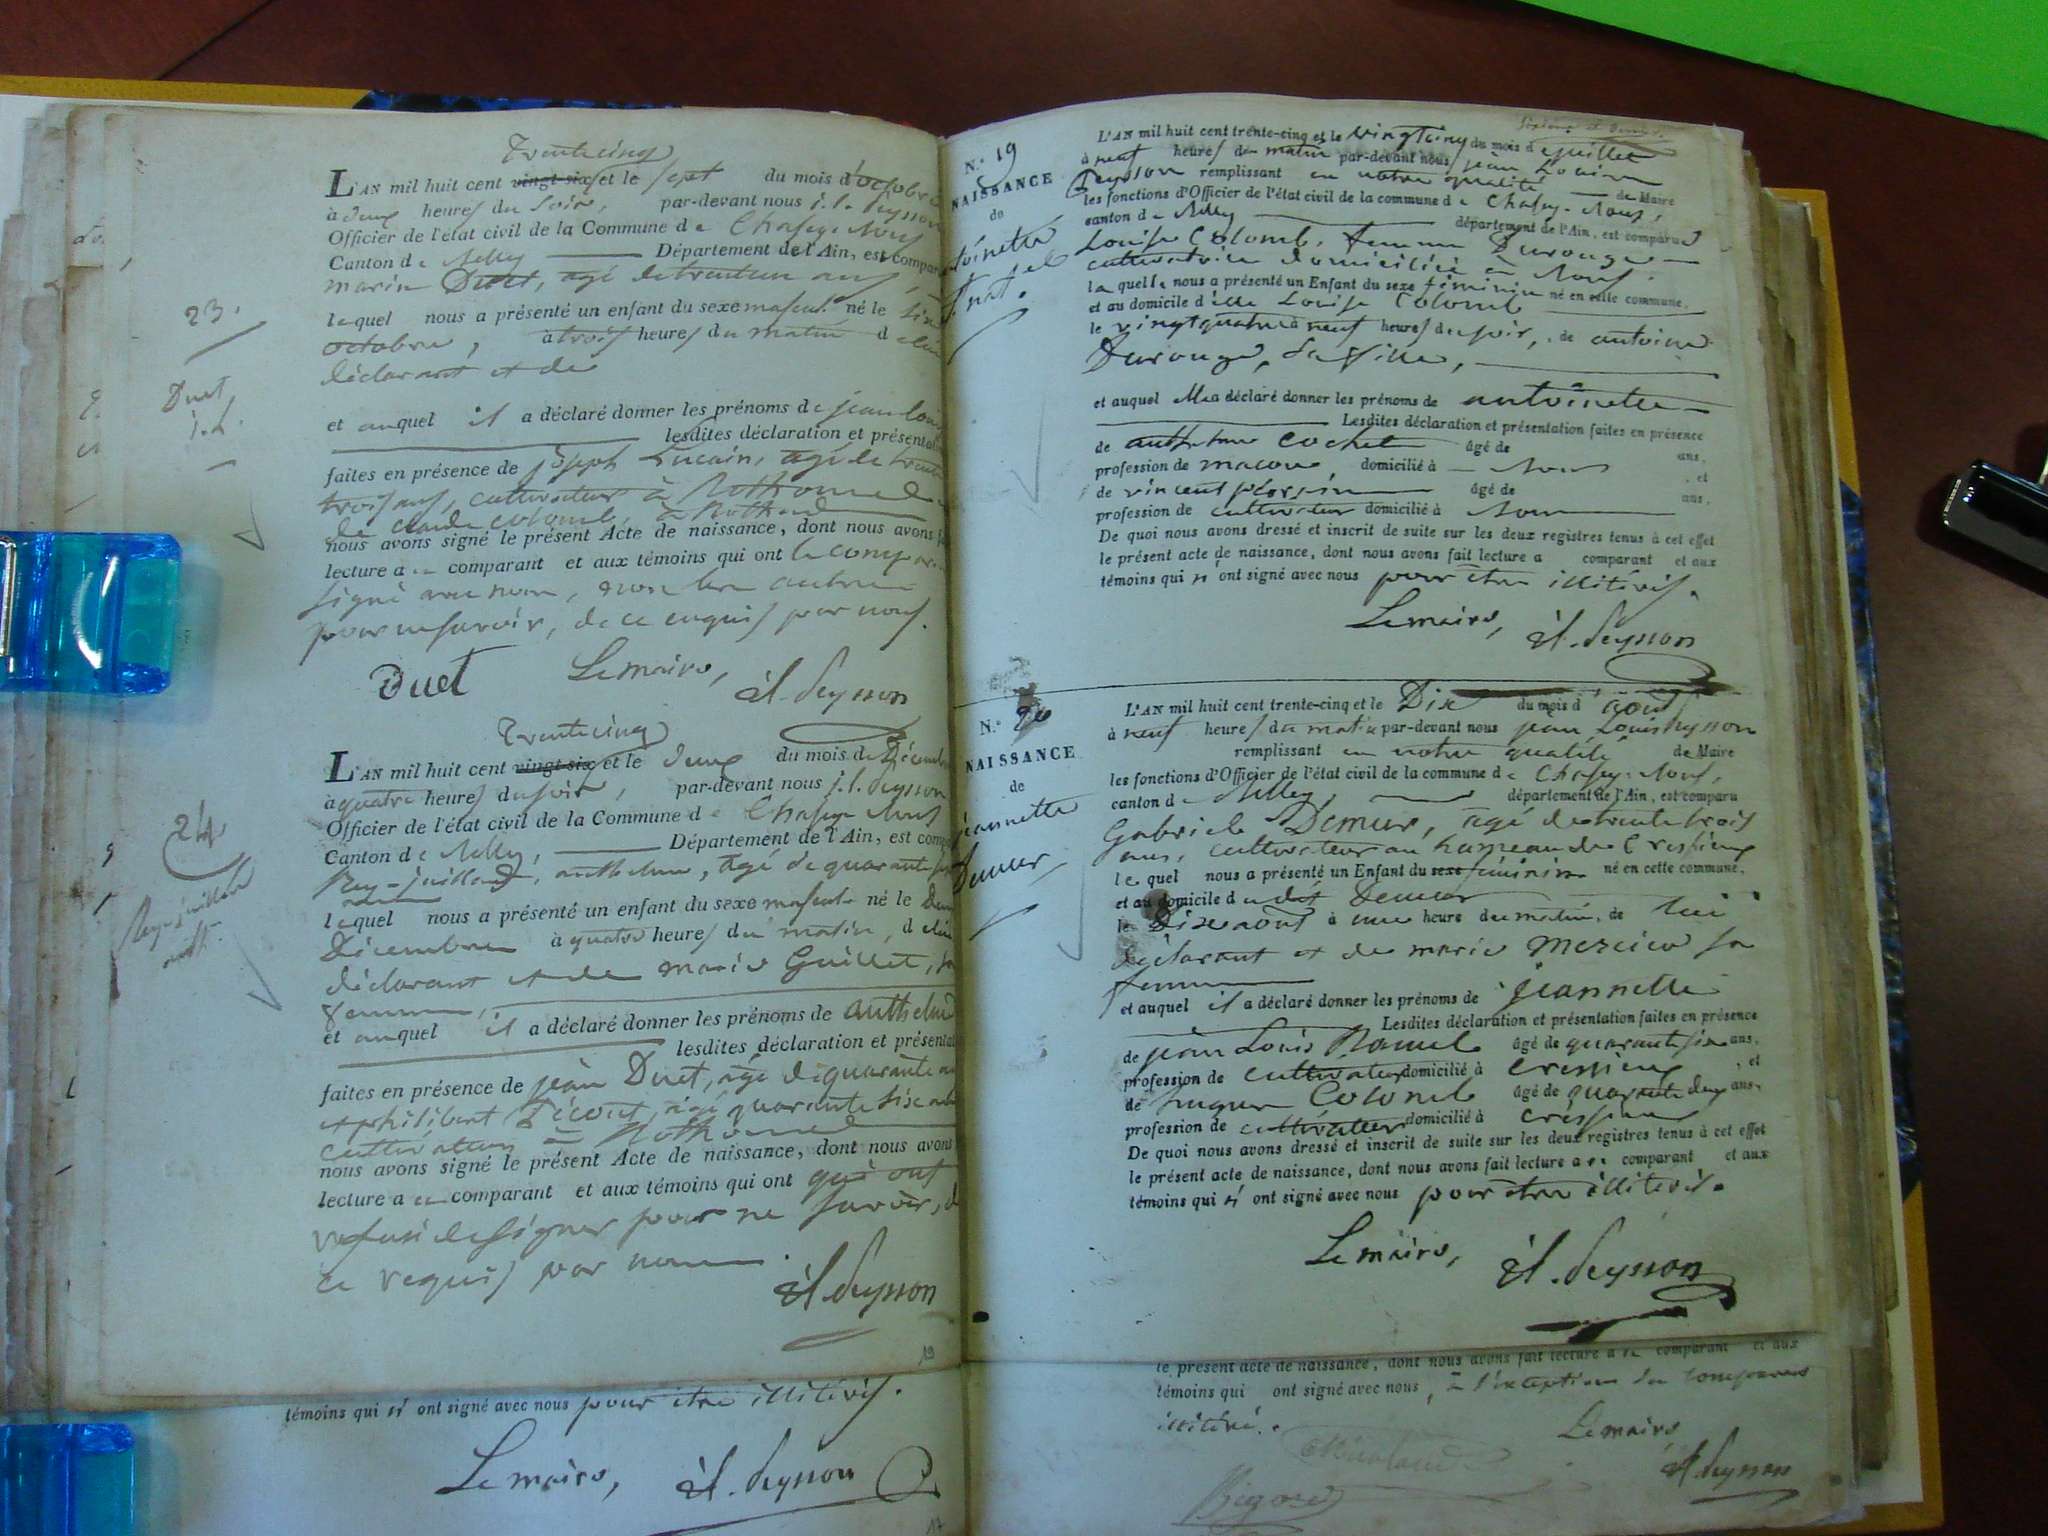 Trente cinq
L'AN mil huit cent vingt-six et le sept du mois d'octobre
à deux heures du soir, par-devant nous j. l. peysson
Officier de l'état civil de la Commune de Chazey-
Canton de Département de l'Ain, est compar
marin Duet, agé de trentun ans,
lequel nous a présenté un enfant du sexe mascul. né le six
octobre, à trois heures du matin de lui
déclarant et de
23.
Duet,
j. L.
et auquel il a déclaré donner les prénoms de jean louis
lesdites déclaration et présentat
faites en présence de joseph agé de trente
trois ans, cultivateur à Rothonnod
de claude colomb, à Rothonod
nous avons signé le présent Acte de naissance, dont nous avons f
lecture a ce comparant et aux témoins qui ont le compar
signé avec nous, non les autres
pour ne savoir, de ce enquis par nous.
Duet Le maire, jl. peysson
Trente cinq
L'AN mil huit cent vingt-six et le deux du mois de Décemb
à quatre heures du soir, par-devant nous j. l. peysson
Officier de l'état civil de la Commune de
Canton de Département de l'Ain, est comp
24
Rey-juilland, anthelme, agé de quarante
lequel nous a présenté un enfant du sexe masculin né le Deux
Décembre à quatre heures du matin, de lui
déclarant et de marie Guillet, sa
femme,
et auquel il a déclaré donner les prénoms de anthelme
lesdites déclaration et présentat
faites en présence de jean Duet, agé de quarante
et philibert agé quarante six ans
cultivateurs à Rothonnod
nous avons signé le présent Acte de naissance, dont nous avons
lecture a ce comparant et aux témoins qui ont qui ont
refusé de signer pour ne savoir, d
ce requis par nous.
jl. peysson
19
témoins qui si ont signé avec nous pour être illitérés.
Le maire, jl. peysson
17
N.º 19
NAISSANCE
de
toinette
L'AN mil huit cent trente-cinq et le vingt cinq du mois de juillet
à neuf heures du matin par-devant nous jean Louis
peysson remplissant en notre qualité de Maire
les fonctions d'Officier de l'état civil de la commune de Chazey-
canton de département de l'Ain, est comparue
Louise Colomb, femme Durouge
cultivatrice domiciliée en
laquelle nous a présenté un Enfant du sexe féminin né en cette commune,
et au domicile d'elle Louise Colomb
le vingt quatre à neuf heures du soir, de antoine
Durouge, sa fille,
et auquel elle a déclaré donner les prénoms de antoinette
Lesdites déclaration et présentation faites en présence
de anthelme Cochet âgé de ans,
profession de macon, domicilié à , et
de vincent âgé de ans,
profession de cultivateur domicilié à
De quoi nous avons dressé et inscrit de suite sur les deux registres tenus à cet effet
le présent acte de naissance, dont nous avons fait lecture a comparant et aux
témoins qui si ont signé avec nous pour être illitérés.
Le maire, jl. peysson
N.º 20
NAISSANCE
de
jeannette
Demur
L'AN mil huit cent trente-cinq et le Dix du mois d'août
à neuf heures du matin par-devant nous jean Louis peysson
remplissant en notre qualité de Maire
les fonctions d'Officier de l'état civil de la commune de Chazey-
canton de département de l'Ain, est comparu
Gabriel Demur, agé de trente trois
ans, cultivateur au hameau de Cressieux
lequel nous a présenté un Enfant du sexe féminin né en cette commune,
et au domicile du dit Demur
le Dix août à une heure du matin, de lui
déclarant et de marie Mercier sa
femme
et auquel il a déclaré donner les prénoms de jeannette
Lesdites déclaration et présentation faites en présence
de jean Louis âgé de quarante six ans,
profession de cultivateur domicilié à Cressieux , et
de hugues Colomb âgé de quarante deux ans,
profession de cultivateur domicilié à cressieux
De quoi nous avons dressé et inscrit de suite sur les deux registres tenus à cet effet
le présent acte de naissance, dont nous avons fait lecture a ce comparant et aux
témoins qui si ont signé avec nous pour être illitérés.
Le maire, jl. peysson
le présent acte de naissance, dont nous avons fait lecture a ce comparant et aux
témoins qui ont signé avec nous, à l'exception du comparant
illitéré.
Le maire,
jl. peysson